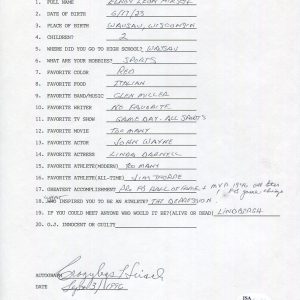 1. FULL NAME ELROY LEON HIRSCH
2. DATE OF BIRTH 6/17/23
3. PLACE OF BIRTH WAUSAU, WISCONSIN
4. CHILDREN? 2
5. WHERE DID YOU GO TO HIGH SCHOOL? WAUSAU
6. WHAT ARE YOUR HOBBIES? SPORTS
7. FAVORITE COLOR RED
8. FAVORITE FOOD ITALIAN
9. FAVORITE BAND/MUSIC GLEN MILLER
10. FAVORITE WRITER NO FAVORITE
11. FAVORITE TV SHOW GAME DAY - ALL SPORTS
12. FAVORITE MOVIE TOO MANY
13. FAVORITE ACTOR JOHN WAYNE
14. FAVORITE ACTRESS LINDA DARNELL
15. FAVORITE ATHLETE(MODERN) TOO MANY
16. FAVORITE ATHLETE(ALL-TIME) JIM THORPE
17. GREATEST ACCOMPLISHMENT PRO FB HALL OF FAME + MVP 1946 all star
FB game Chicago
18. INSPIRED YOU TO BE AN ATHLETE? THE DEPRESSION
19. IF YOU COULD MEET ANYONE WHO WOULD IT BE?(ALIVE OR DEAD) LINDBERGH
20. O.J. INNOCENT OR GUILTY
AUTOGRAPH Crazylegs Hirsch
DATE 1996
JSA